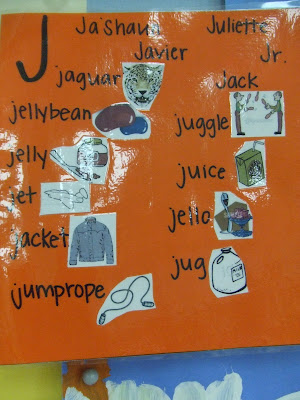 J
Ja'shaun Juliette
Javier Jr.
jaguar Jack
jellybean
juggle
jelly
juice
jet
jello
jacket
jug
jumprope